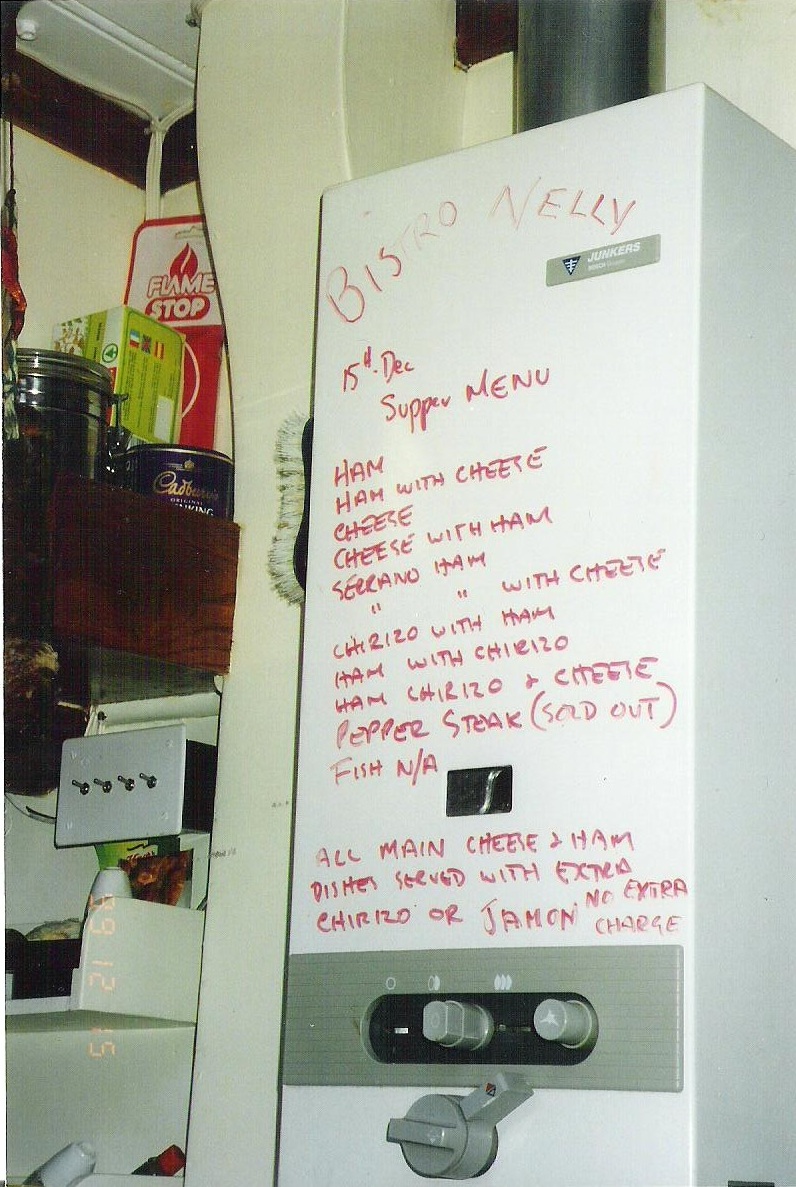 BISTRO NELLY
JUNKERS
15th. Dec
Supper MENU
HAM
HAM WITH CHEESE
CHEESE
CHEESE WITH HAM
SERRANO HAM
" " WITH CHEESE
CHIRIZO WITH HAM
HAM WITH CHIRIZO
HAM CHIRIZO & CHEESE
PEPPER STEAK (SOLD OUT)
FISH N/A
ALL MAIN CHEESE & HAM
DISHES SERVED WITH EXTRA
CHIRIZO OR JAMON NO EXTRA
CHARGE
FLAME
STOP
Cadbury's
ORIGINAL